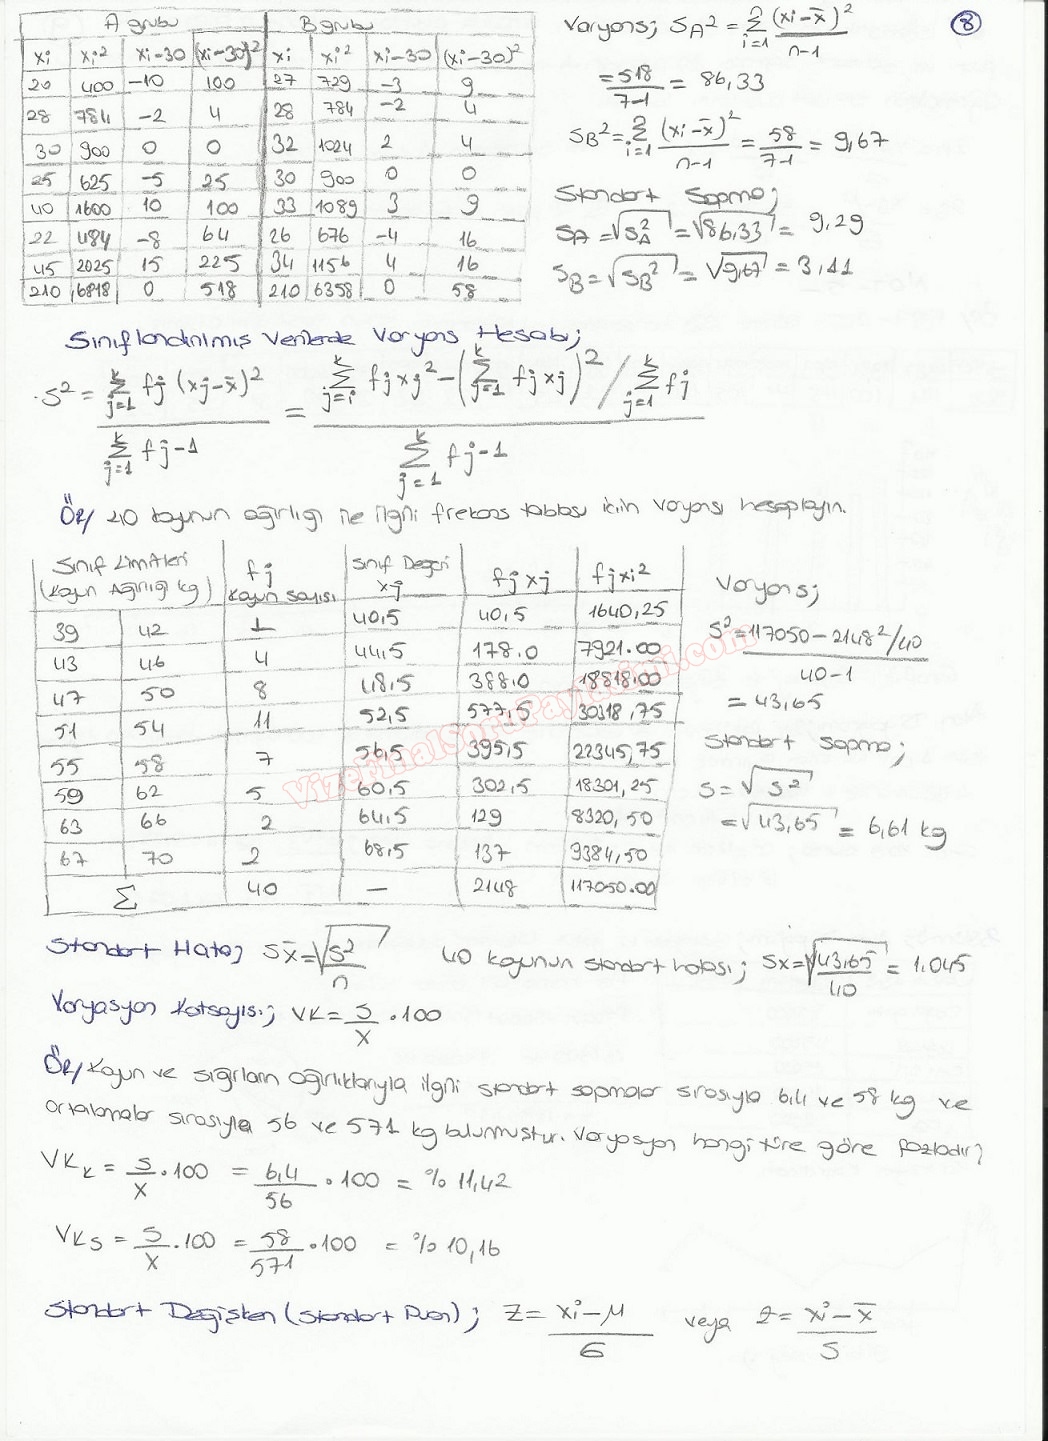 8
A grubu B grubu
xi xi² xi-30 (xi-30)² xi xi² xi-30 (xi-30)²
20 400 -10 100 27 729 -3 9
28 784 -2 4 28 784 -2 4
30 900 0 0 32 1024 2 4
25 625 -5 25 30 900 0 0
40 1600 10 100 33 1089 3 9
22 484 -8 64 26 676 -4 16
45 2025 15 225 34 1156 4 16
210 6818 0 518 210 6358 0 58
Varyans; SA² = Σ i=1 (xi-x̄)² / n-1
= 518 / 7-1 = 86,33
SB² = Σ i=1 (xi-x̄)² / n-1 = 58 / 7-1 = 9,67
Standart Sapma;
SA = √SA² = √86,33 = 9,29
SB = √SB² = √9,67 = 3,11
Sınıflandırılmış Verilerde Varyans Hesabı;
S² = Σ k j=1 fj (xj-x̄)² / Σ k j=1 fj-1 = Σ k j=i fjxj² - (Σ k j=1 fjxj)² / Σ k j=1 fj / Σ k j=1 fj-1
Ör/ 40 koyunun ağırlığı ile ilgili frekans tablosu için varyansı hesaplayın.
Sınıf Limitleri (Koyun Ağırlığı kg) fj koyun sayısı Sınıf Değeri xj fjxj fjxi²
39 42 1 40,5 40,5 1640,25
43 46 4 44,5 178.0 7921.00
47 50 8 48,5 388.0 18818.00
51 54 11 52,5 577,5 30318,75
55 58 7 56,5 395,5 22345,75
59 62 5 60,5 302,5 18301,25
63 66 2 64,5 129 8320,50
67 70 2 68,5 137 9384,50
Σ 40 — 2148 117050.00
Varyans;
S² = 117050 - 2148²/40 / 40-1
= 43,65
Standart Sapma;
S = √S²
= √43,65 = 6,61 kg
VizeFinalSoruPaylasimi.com
Standart Hata; Sx̄ = √S²/n 40 koyunun standart hatası; Sx = √43,65/40 = 1.045
Varyasyon Katsayısı; VK = S/X . 100
Ör/ Koyun ve sığırların ağırlıklarıyla ilgili standart sapmalar sırasıyla 6,4 ve 58 kg ve
ortalamalar sırasıyla 56 ve 571 kg bulunmuştur. Varyasyon hangi türe göre fazladır;
VKK = S/X . 100 = 6,4/56 . 100 = % 11,42
VKS = S/X . 100 = 58/571 . 100 = % 10,16
Standart Değişken (Standart Puan); Z = xi-μ / 6 veya z = xi-x̄ / S